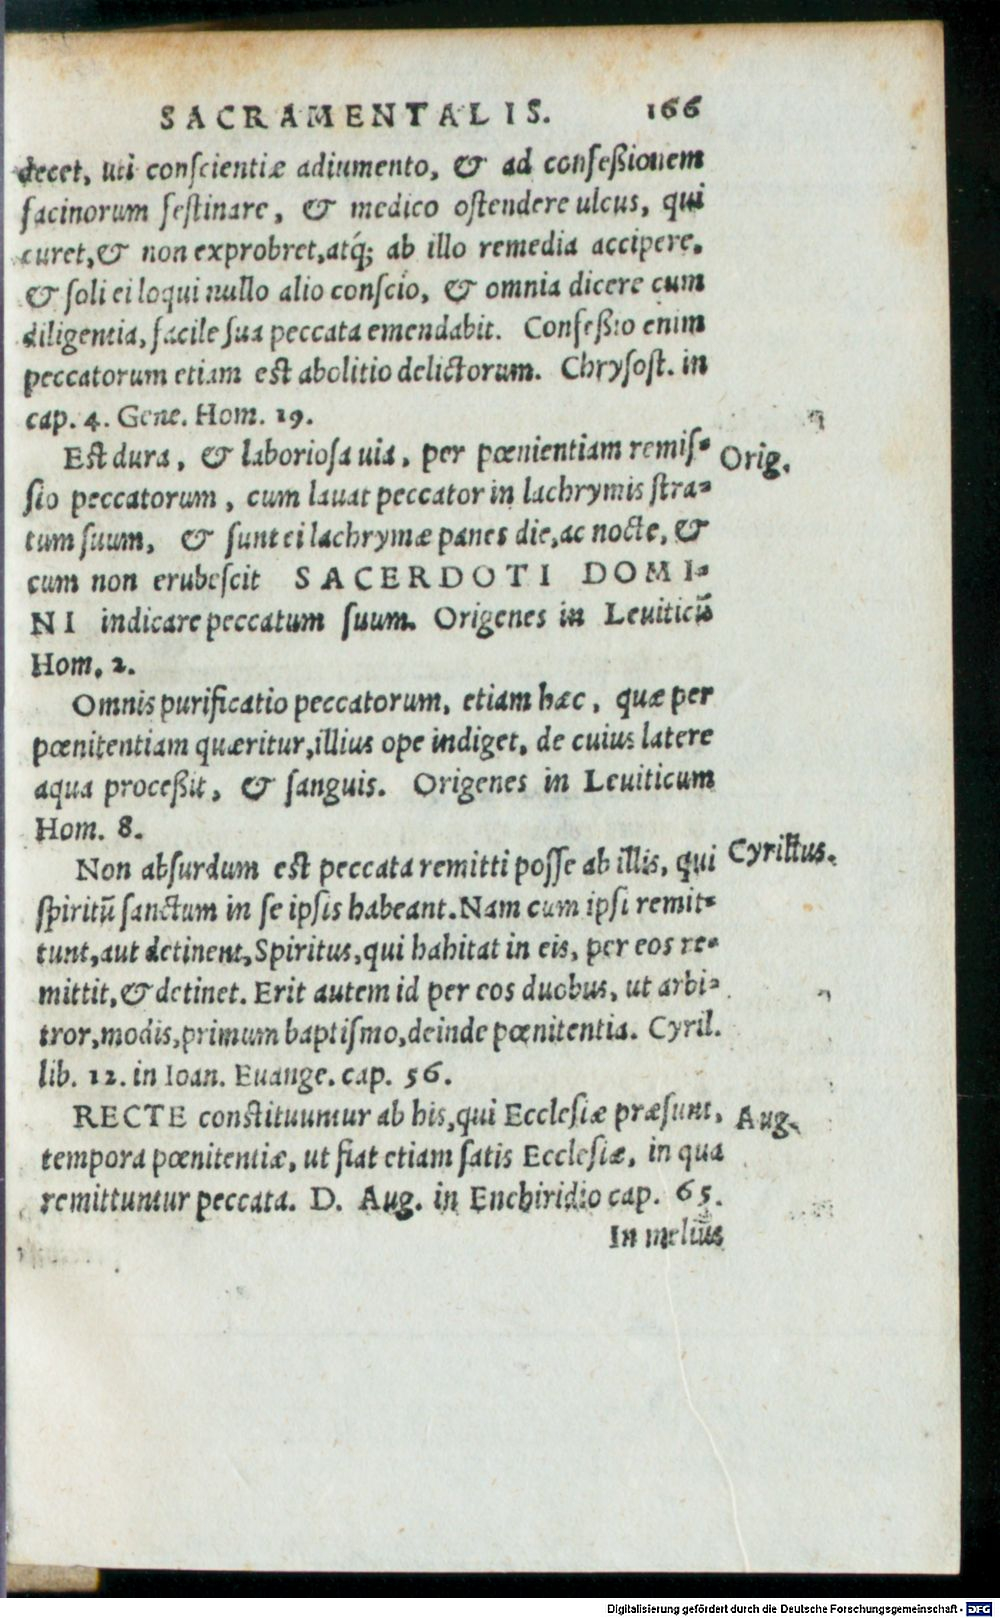 SACRAMENTALIS. 166
decet, uti conscientiæ adiumento, & ad confeßionem
facinorum festinare, & medico ostendere ulcus, qui
curet, & non exprobret, atq́; ab illo remedia accipere.
& soli ei loqui nullo alio conscio, & omnia dicere cum
diligentia, facile sua peccata emendabit. Confeßio enim
peccatorum etiam est abolitio delictorum. Chrysost. in
cap. 4. Gene. Hom. 19.
Est dura, & laboriosa uia, per pœnientiam remis-
sio peccatorum, cum lauat peccator in lachrymis stra-
tum suum, & sunt ei lachrymæ panes die, ac nocte, &
cum non erubescit SACERDOTI DOMI-
NI indicare peccatum suum. Origenes in Leuiticũ
Hom. 2.
Orig.
Omnis purificatio peccatorum, etiam hæc, quæ per
pœnitentiam quæritur, illius ope indiget, de cuius latere
aqua proceßit, & sanguis. Origenes in Leuiticum
Hom. 8.
Non absurdum est peccata remitti posse ab illis, qui
spiritũ sanctum in se ipsis habeant. Nam cum ipsi remit-
tunt, aut detinent, Spiritus, qui habitat in eis, per eos re-
mittit, & detinet. Erit autem id per eos duobus, ut arbi-
tror, modis, primum baptismo, deinde pœnitentia. Cyril.
lib. 12. in Ioan. Euange. cap. 56.
Cyrillus.
RECTE constituuntur ab his, qui Ecclesiæ præsunt,
tempora pœnitentiæ, ut fiat etiam satis Ecclesiæ, in qua
remittuntur peccata. D. Aug. in Enchiridio cap. 65.
Aug.
In melius
Digitalisierung gefördert durch die Deutsche Forschungsgemeinschaft - DFG